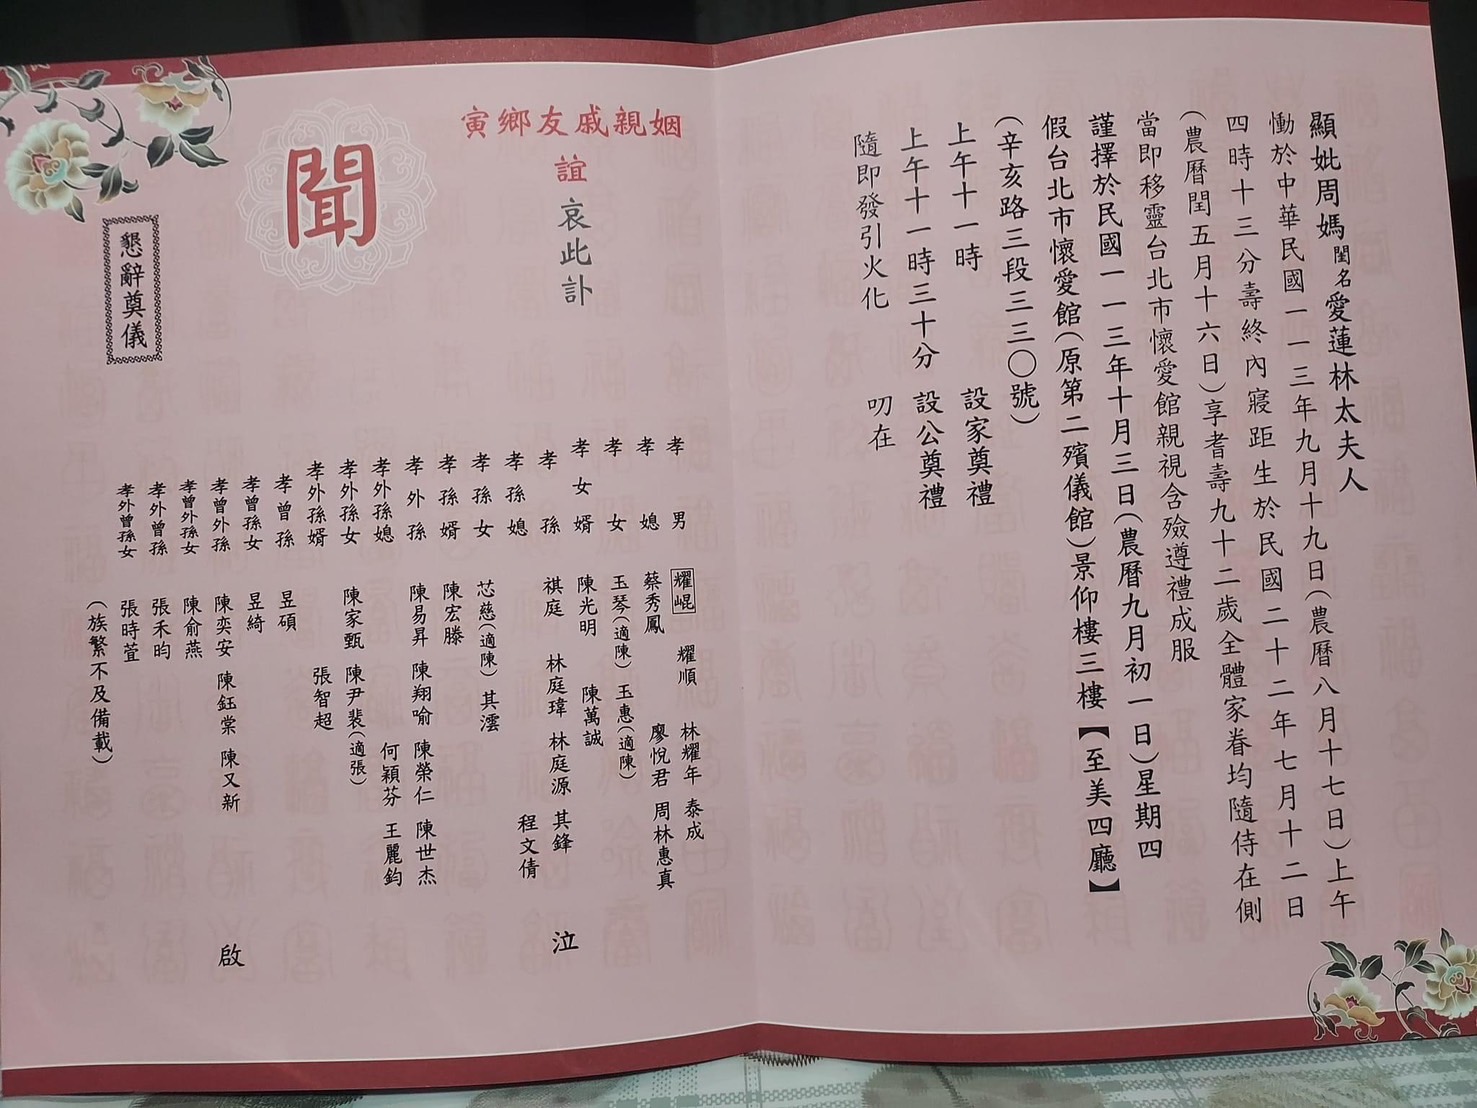 顯妣周媽閨名愛蓮林太夫人
慟於中華民國一一三年九月十九日(農曆八月十七日)上午
四時十三分壽終內寢距生於民國二十二年七月十二日
(農曆閏五月十六日)享耆壽九十二歲全體家眷均隨侍在側
當即移靈台北市懷愛館親視含殮遵禮成服
謹擇於民國一一三年十月三日(農曆九月初一日)星期四
假台北市懷愛館(原第二殯儀館)景仰樓三樓【至美四廳】
(辛亥路三段三三〇號)
上午十一時 設家奠禮
上午十一時三十分 設公奠禮
隨即發引火化 叨在
姻親戚友鄉寅
誼哀此訃
聞
懇辭奠儀
孝男 耀崐 耀順 林耀年 泰成
孝媳 蔡秀鳳 廖悅君 周林惠真
孝女 玉琴(適陳) 玉惠(適陳)
孝女婿 陳光明 陳萬誠
孝孫 祺庭 林庭瑋 林庭源 其鋒
孝孫媳 程文倩
孝孫女 芯慈(適陳) 其澐
孝孫婿 陳宏滕
孝外孫 陳易昇 陳翔喻 陳榮仁 陳世杰
孝外孫媳 何穎芬 王麗鈞
孝外孫女 陳家甄 陳尹裴(適張)
孝外孫婿 張智超
孝曾孫 昱碩
孝曾孫女 昱綺
孝曾外孫 陳奕安 陳鈺棠 陳又新
孝曾外孫女 陳俞燕
孝外曾孫 張禾昀
孝外曾孫女 張時萱
(族繁不及備載)
泣
啟